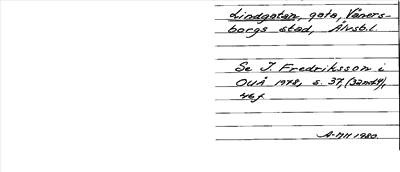 Lindgatan, gata, Väners-
borgs stad, Älvsb.l.
Se I. Fredriksson i
OUÅ 1978, s. 37,
46f
A-MH 1980